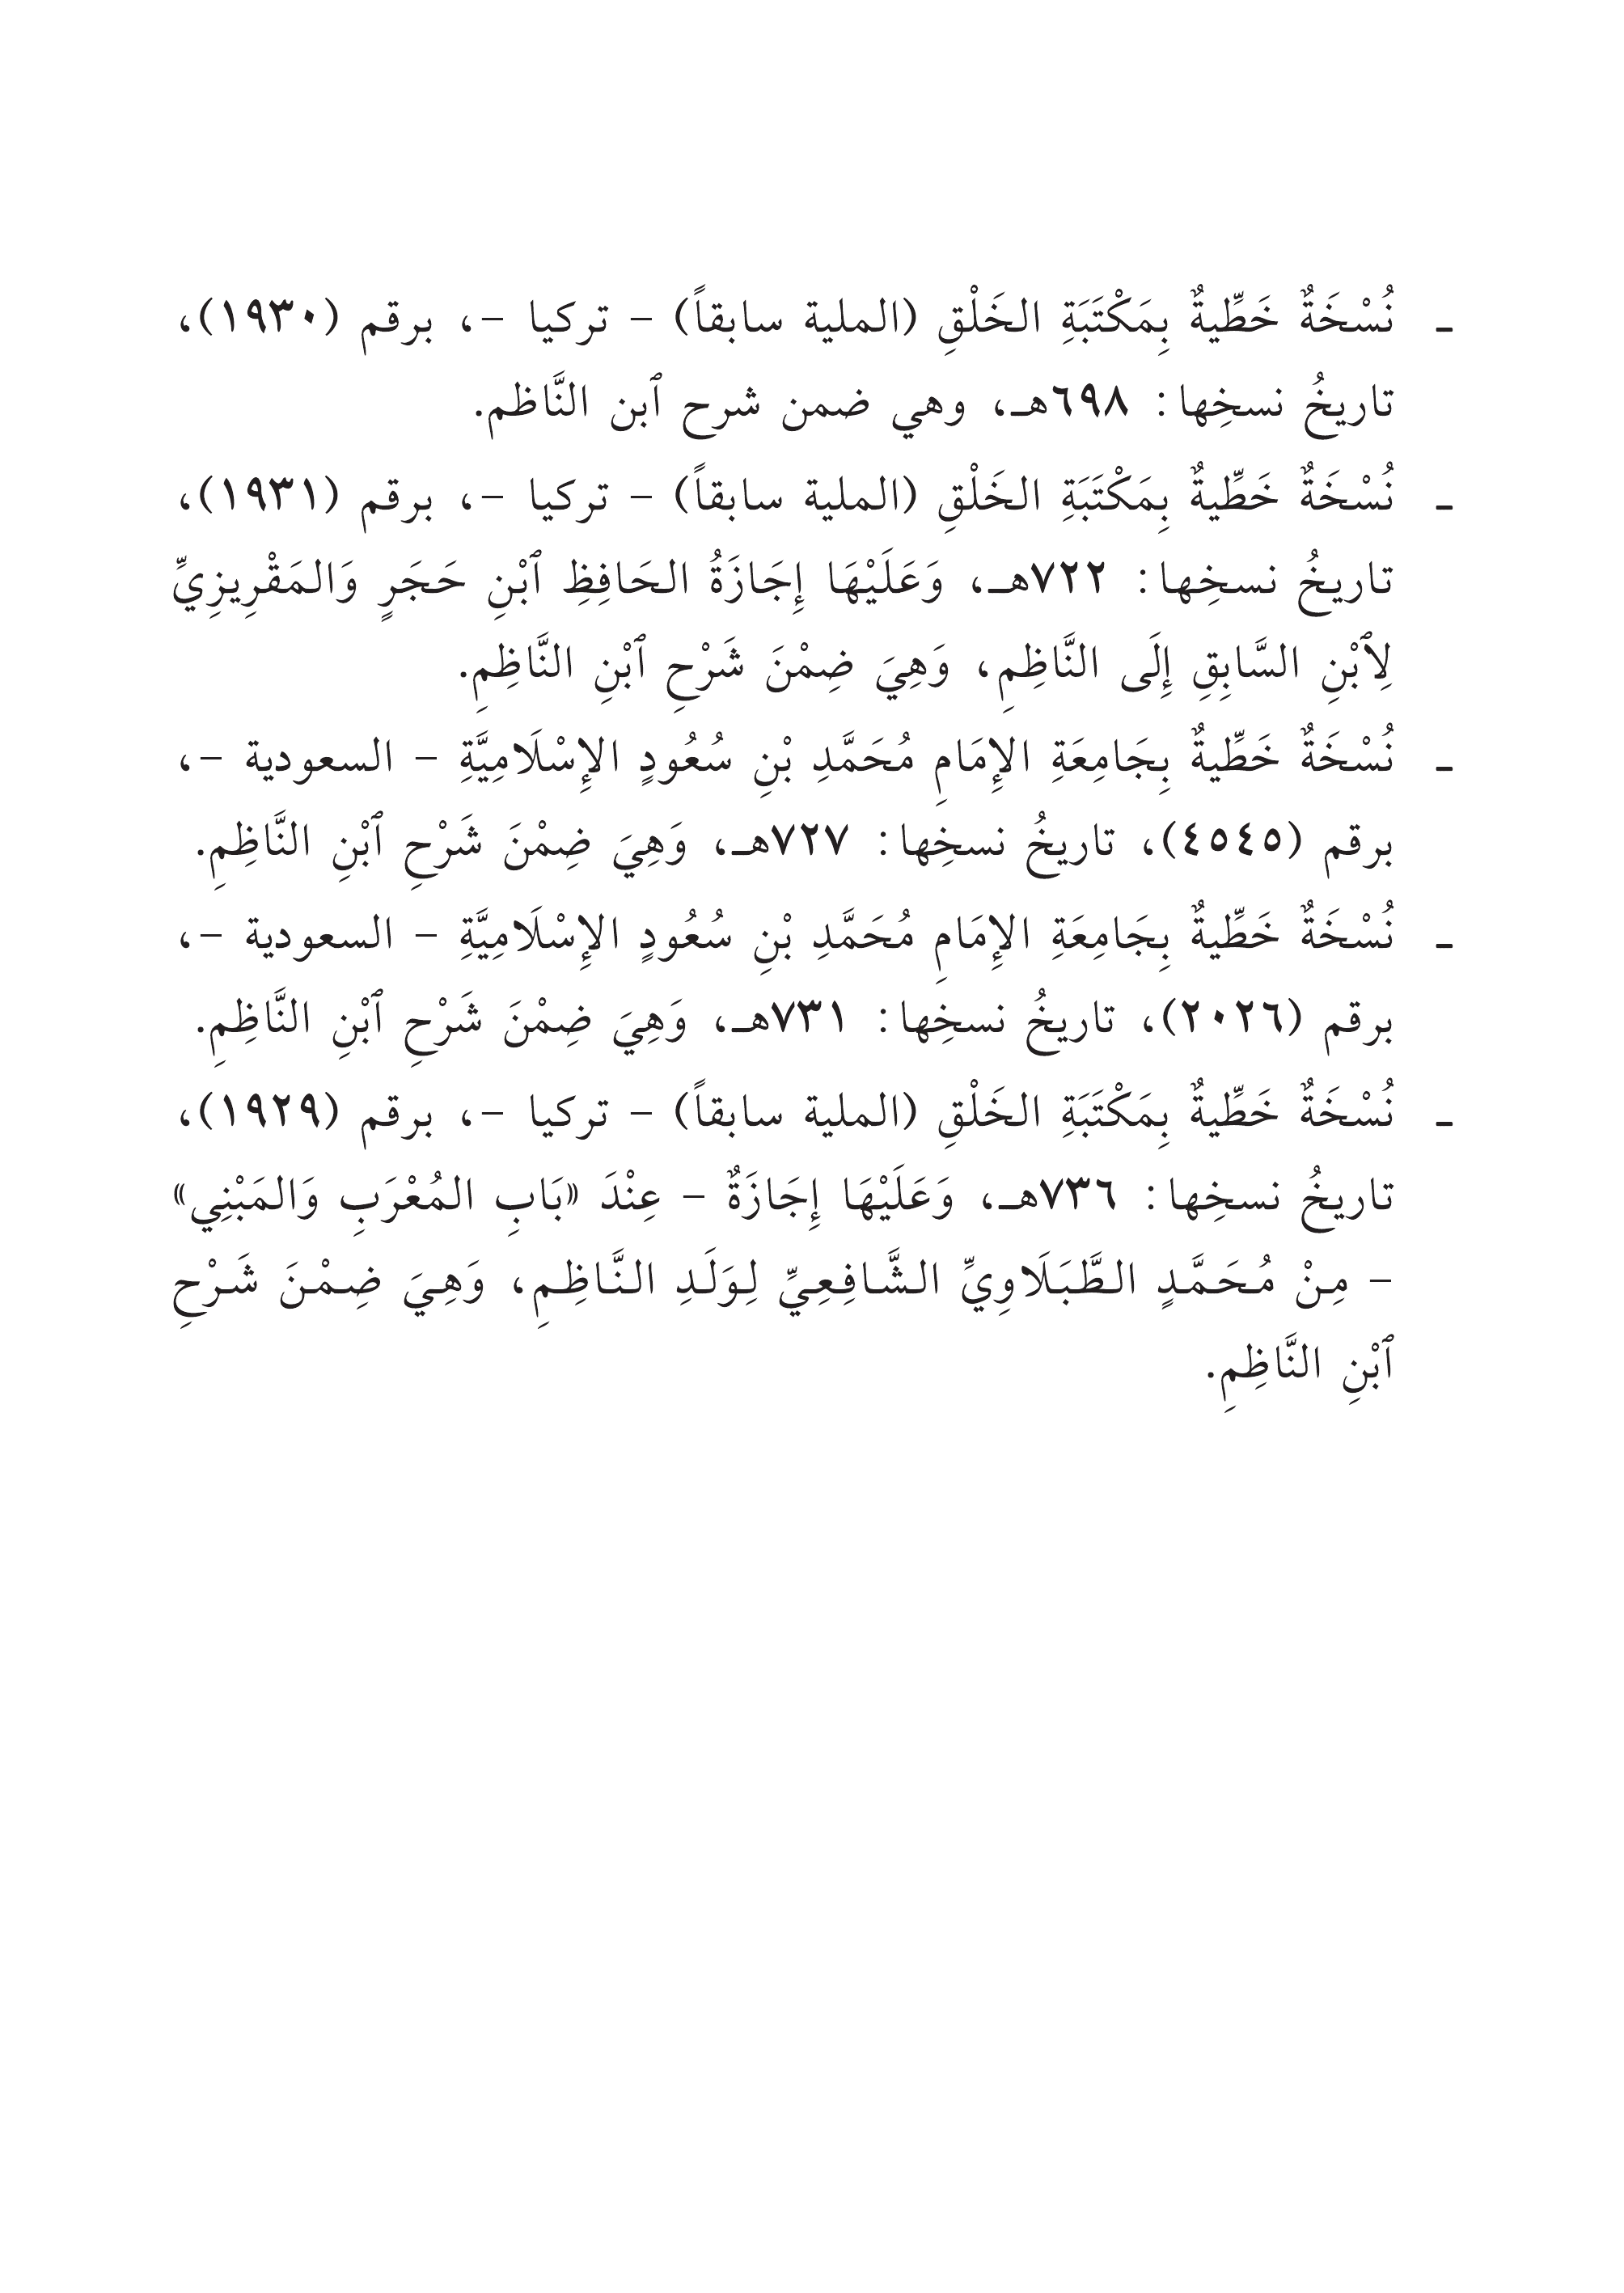 ـ نُسْخَةٌ خَطِّيةٌ بِمَكْتَبَةِ الخَلْقِ (الملية سابقاً) - تركيا -، برقم (١٩٣٠)،
تاريخُ نسخِها: ٦٩٨هـ، وهي ضمن شرح ٱبن النَّاظم.
ـ نُسْخَةٌ خَطِّيةٌ بِمَكْتَبَةِ الخَلْقِ (الملية سابقاً) - تركيا -، برقم (١٩٣١)،
تاريخُ نسخِها: ٧٢٢هـ، وَعَلَيْهَا إِجَازَةُ الحَافِظِ ٱبْنِ حَجَرٍ وَالمَقْرِيزِيِّ
لِٱبْنِ السَّابِقِ إِلَى النَّاظِمِ، وَهِيَ ضِمْنَ شَرْحِ ٱبْنِ النَّاظِمِ.
ـ نُسْخَةٌ خَطِّيةٌ بِجَامِعَةِ الإِمَامِ مُحَمَّدِ بْنِ سُعُودٍ الإِسْلَامِيَّةِ - السعودية -،
برقم (٤٥٤٥)، تاريخُ نسخِها: ٧٢٧هـ، وَهِيَ ضِمْنَ شَرْحِ ٱبْنِ النَّاظِمِ.
ـ نُسْخَةٌ خَطِّيةٌ بِجَامِعَةِ الإِمَامِ مُحَمَّدِ بْنِ سُعُودٍ الإِسْلَامِيَّةِ - السعودية -،
برقم (٢٠٢٦)، تاريخُ نسخِها: ٧٣١هـ، وَهِيَ ضِمْنَ شَرْحِ ٱبْنِ النَّاظِمِ.
ـ نُسْخَةٌ خَطِّيةٌ بِمَكْتَبَةِ الخَلْقِ (الملية سابقاً) - تركيا -، برقم (١٩٢٩)،
تاريخُ نسخِها: ٧٣٦هـ، وَعَلَيْهَا إِجَازَةٌ - عِنْدَ «بَابِ المُعْرَبِ وَالمَبْنِي»
- مِنْ مُحَمَّدٍ الطَّبَلَاوِيِّ الشَّافِعِيِّ لِوَلَدِ النَّاظِمِ، وَهِيَ ضِمْنَ شَرْحِ
ٱبْنِ النَّاظِمِ.